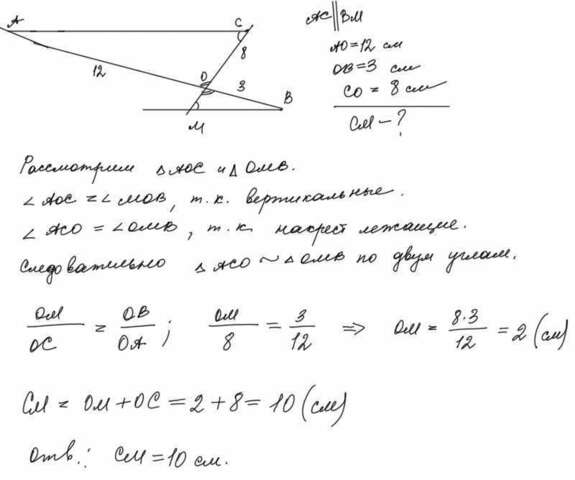 A
C
8
12
O
3
B
M
AC||BM
AO=12 см
OB=3 см
CO = 8 см
CM – ?
Рассмотрим △AOC и △OMB.
∠AOC = ∠MOB, т.к. вертикальные.
∠ACO = ∠OMB, т.к. накрест лежащие.
Следовательно △ACO ~ △OMB по двум углам.
OM/OC = OB/OA; OM/8 = 3/12 => OM = 8·3/12 = 2 (см)
CM = OM+OC = 2+8 = 10 (см)
Отв.: CM = 10 см.